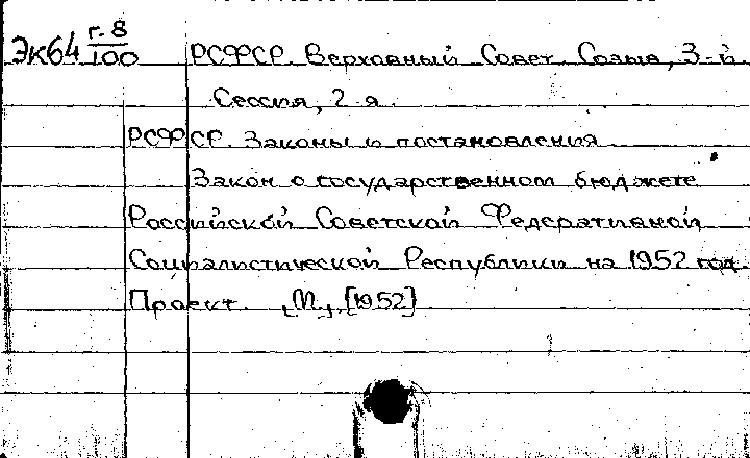 Эк64 г.8/100 РСФСР. Верховный Совет. Созыв, 3-й
Сессия, 2-я.
РСФСР. Законы и постановления
Закон о государственном бюджете
Российской Советской Федеративной
Социалистической Республики на 1952 год.
Проект. [М.], [1952]